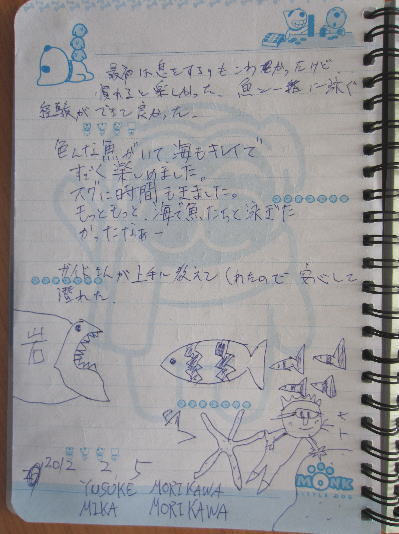 最初は息をするのもこわかったけど
慣れると楽しかった。魚と一緒に泳ぐ
経験ができて良かった。
色んな魚がいて、海もキレイで
すごく楽しめました。
スグに時間もきました。
もっともっと、海で魚たちと泳ぎた
かったなぁー
ガイドさんが上手に教えてくれたので安心して
潜れた。
岩
2012 2 5
YUSUKE MORIKAWA
MIKA MORIKAWA
MONK
LITTLE DOG